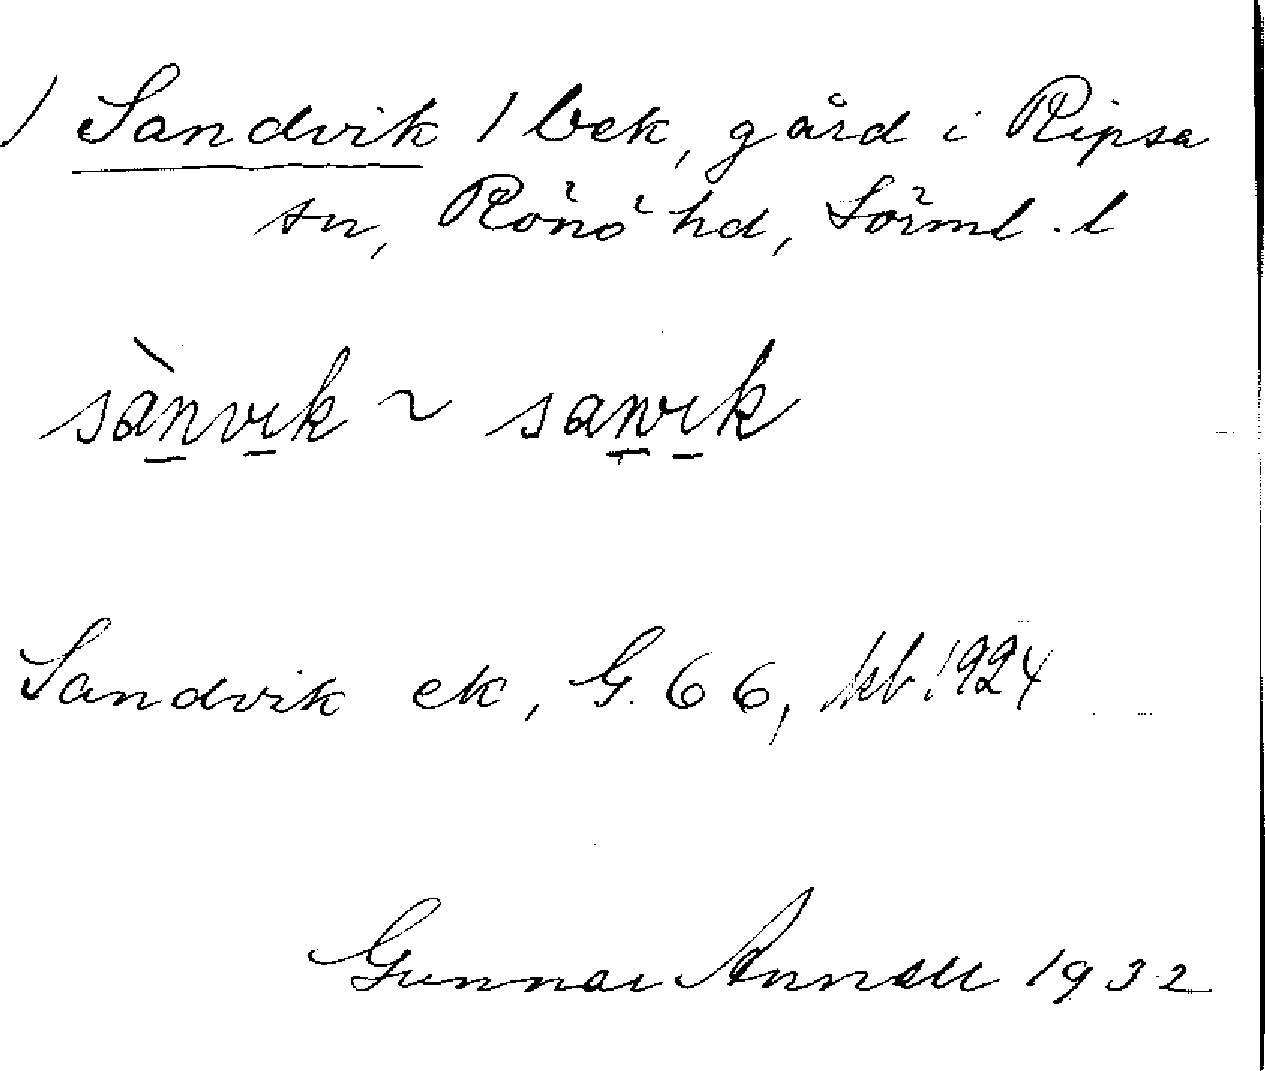 / Sandvik / bek, gård i Ripsa
sn, Rönö hd, Sörml. l
sànvik ~ sanvik
Sandvik ek, G. 66, kb. 1924
Gunnar 1932